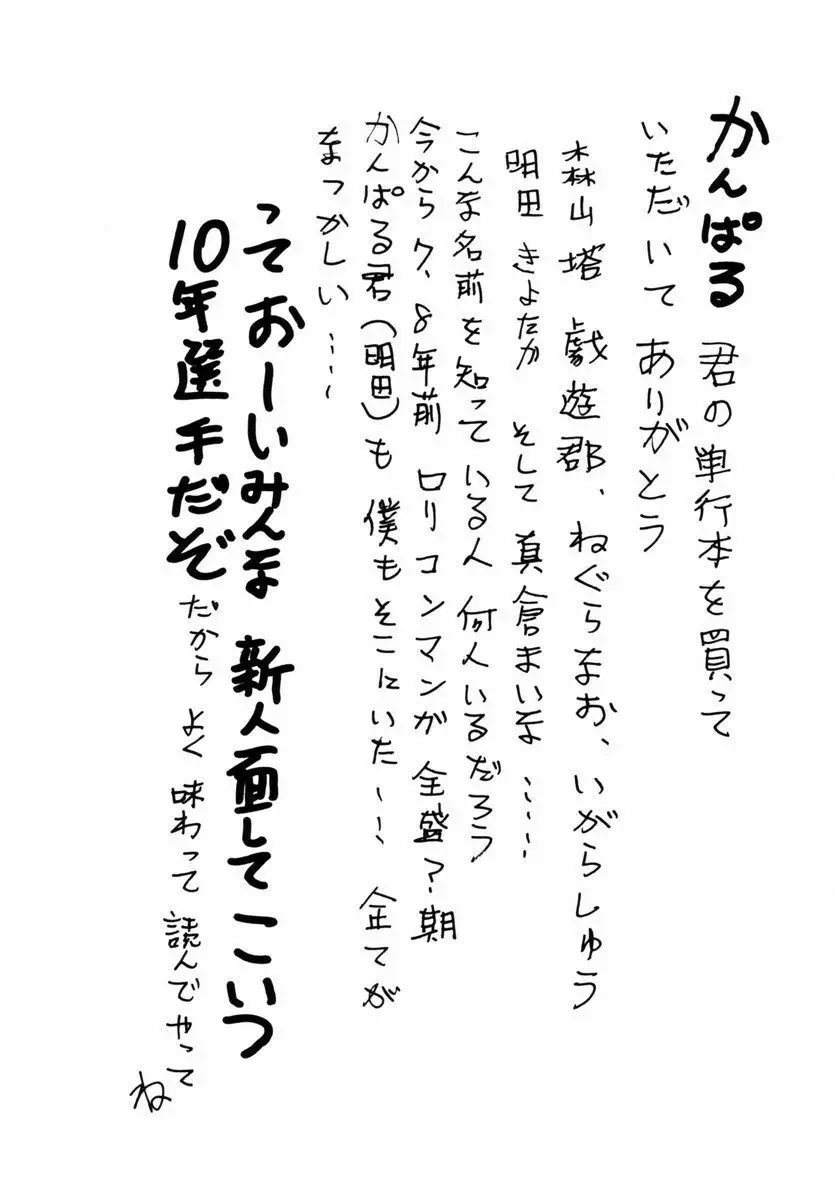 かんぱる君の単行本を買って
いただいてありがとう
森山塔 戯遊郡、ねぐらなお、いがらしゅう
明田きよたか そして 真倉まいな……
こんな名前を知っている人 何人いるだろう
今から7、8年前 ロリコンマンガ全盛?期
かんぱる君(明田)も 僕もそこにいた… 全てが
なつかしい……
っておーいみんな 新人面してこいつ
10年選手だぞ だから よく味わって 読んでやって
ね